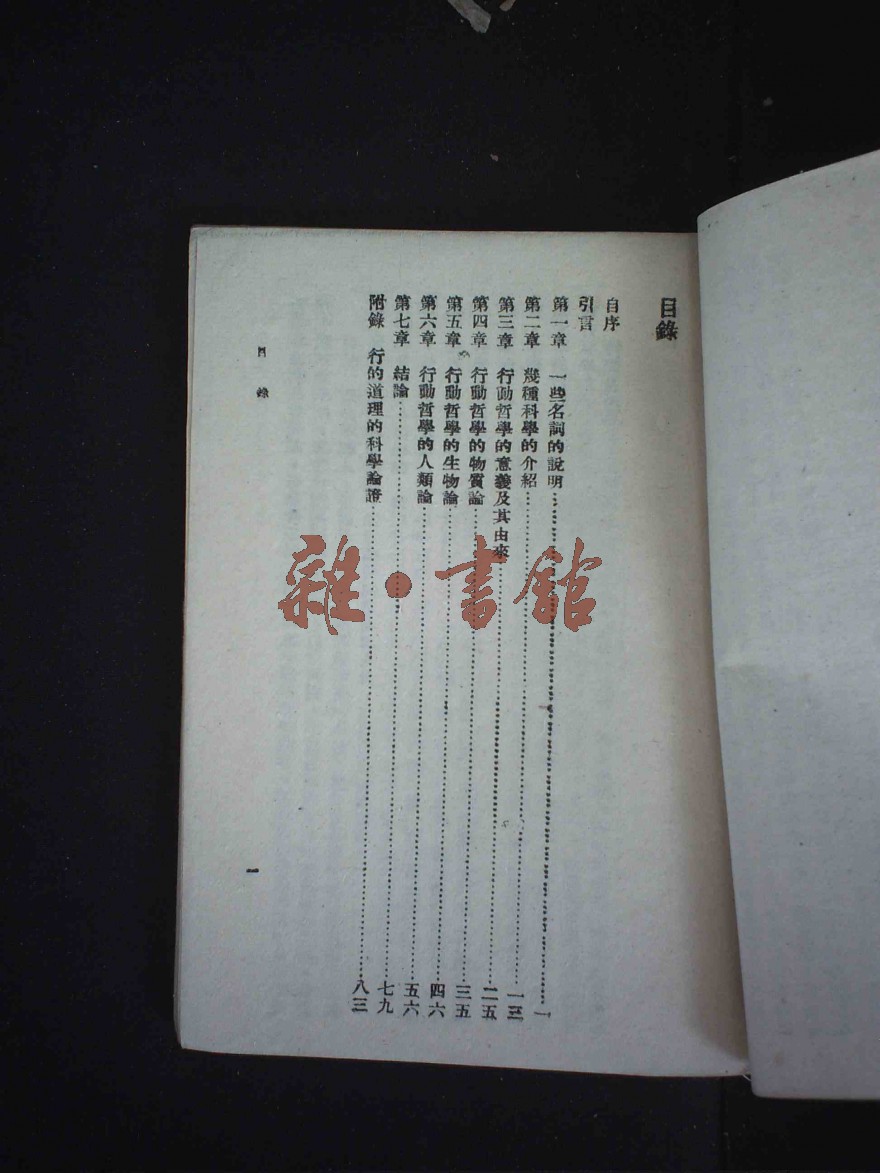 目錄
自序
引言
第一章　一些名詞的說明⋯⋯一
第二章　幾種科學的介紹⋯⋯一三
第三章　行動哲學的意義及其由來⋯⋯二五
第四章　行動哲學的物質論⋯⋯三五
第五章　行動哲學的生物論⋯⋯四六
第六章　行動哲學的人類論⋯⋯五六
第七章　結論⋯⋯七九
附錄　行的道理的科學論證⋯⋯八三
目錄
一
雜·書館